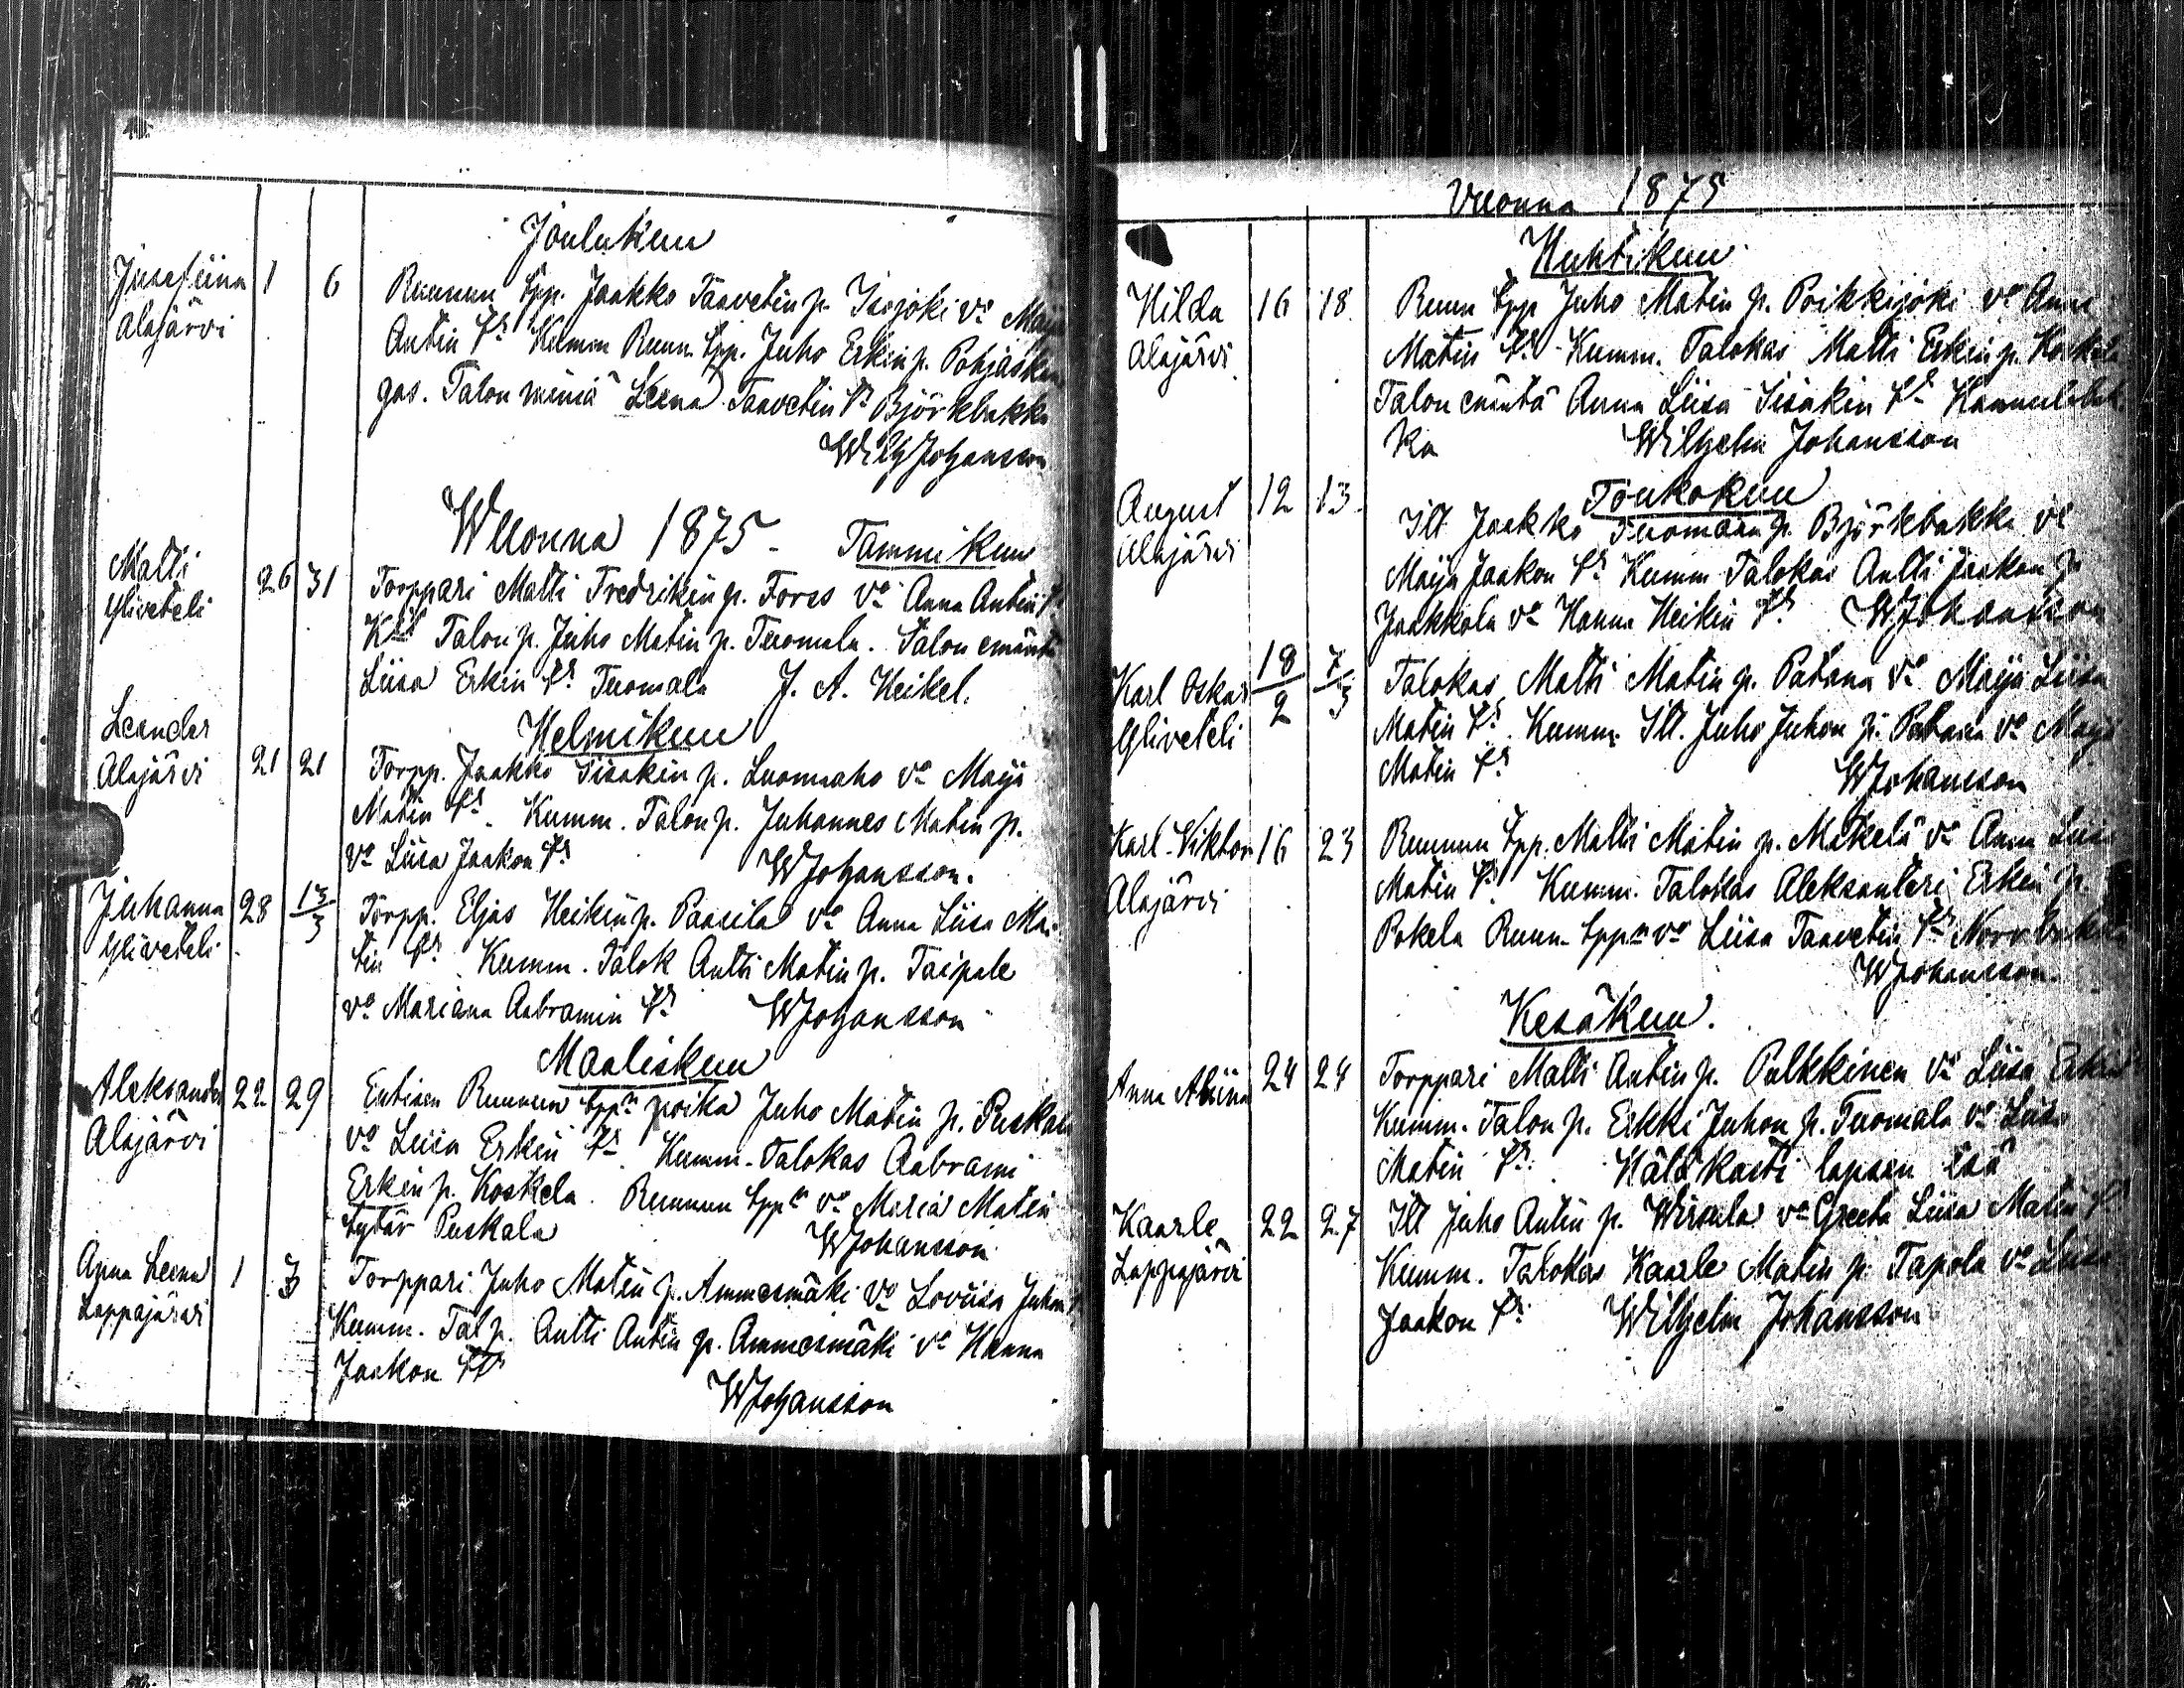 Joulukuu
Josefiina 1 6 Ruunun tpp. Jaakko Taavetin p. Isojoki vo Maija
Alajärvi Antin tr Kumm Ruun. tpp. Juho Erkin p. Pohjaskan
gas. Talon miniä Leena Taavetin tr Björkbakka
Wilh Johansson
Wuonna 1875 - Tammikuu
Matti 26 31 Torppari Matti Fredrikin p. Forss vo Anna Antin tr
Yliveteli Talon p. Juho Matin p. Tuomala. Talon emäntä
Liisa Erkin tr Tuomala J. A. Heikel.
Helmikuu
Leander 21 21 Torpp. Jaakko Iisakin p. Luomaaho vo Maija
Alajärvi Matin tr. Kumm. Talon p. Juhannes Matin p.
vo Liisa Jaakon tr WJohansson.
Juhanna 28 13/3 Torpp. Eljas Heikin p. Paasila vo Anna Liisa Ma-
Yliveteli tin tr Kumm. Talok Antti Matin p. Taipale
vo Mariana Aabramin tr WJohansson
Maaliskuu
Aleksander 22 29 Entisen Ruunun tppn poika Juho Matin p. Puskala
Alajärvi vo Liisa Erkin tr. Kumm. Talokas Aabrami
Erkin p. Koskela. Ruunun tppn vo Maria Matin
tytär Puskala WJohansson
Anna Leena 1 3 Torppari Juho Matin p. Ammesmäki vo Loviisa Juhon tr
Lappajärvi Kumm. Tal p. Antti Antin p. Ammesmäki vo Hanna
Jaakon tr
WJohansson
Vuonna 1875
Huhtikuu
Hilda 16 18 Ruun tpp Juho Matin p. Poikkijoki vo Anna
Alajärvi Matin tr. Kumm. Talokas Matti Erkin p. Koskela
Talon emäntä Anna Liisa Iisakin tr
ka Wilhelm Johansson
Toukokuu
August 12 13 Itt Jaakko Tuomaan p. Björkbakka vo
Alajärvi Maija Jaakon tr Kumm Talokas Antti Jaakon p.
Jaakkola vo Hanna Heikin tr WJohansson
Karl Oskar 18/2 7/3 Talokas Matti Matin p. Patana vo Maija Liisa
Yliveteli Matin tr. Kumm. Itt. Juho Juhon p. Patana vo Maija
Matin tr WJohansson
Karl Viktor 16 23 Ruunun tpp. Matti Matin p. Mäkelä vo Anna Liisa
Alajärvi Matin tr. Kumm. Talokas Aleksanteri Erkin p.
Pokela Ruun. tppn vo Liisa Taavetin tr Norrbakka
WJohansson.
Kesäkuu.
Anna Aliina 24 24 Torppari Matti Antin p. Pulkkinen vo Liisa Erkin
Kumm. Talon p. Erkki Juhon p. Tuomala vo Liisa
Matin tr. Hätäkasti lapsen isä
Kaarle 22 27 Itt Juho Antin p. Wirsula vo Greeta Liisa Matin tr
Lappajärvi Kumm. Talokas Kaarle Matin p. Tapola vo Liisa
Jaakon tr. Wilhelm Johansson